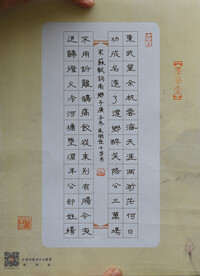 東武望余杭雲海天涯兩杳茫何日
功成名遂了還鄉醉笑陪公三萬場
宋蘇軾詞南鄉子庚子冬
不用訴離觴痛飲從來別有腸今夜
送歸燈火冷河塘墮淚羊公卻姓楊